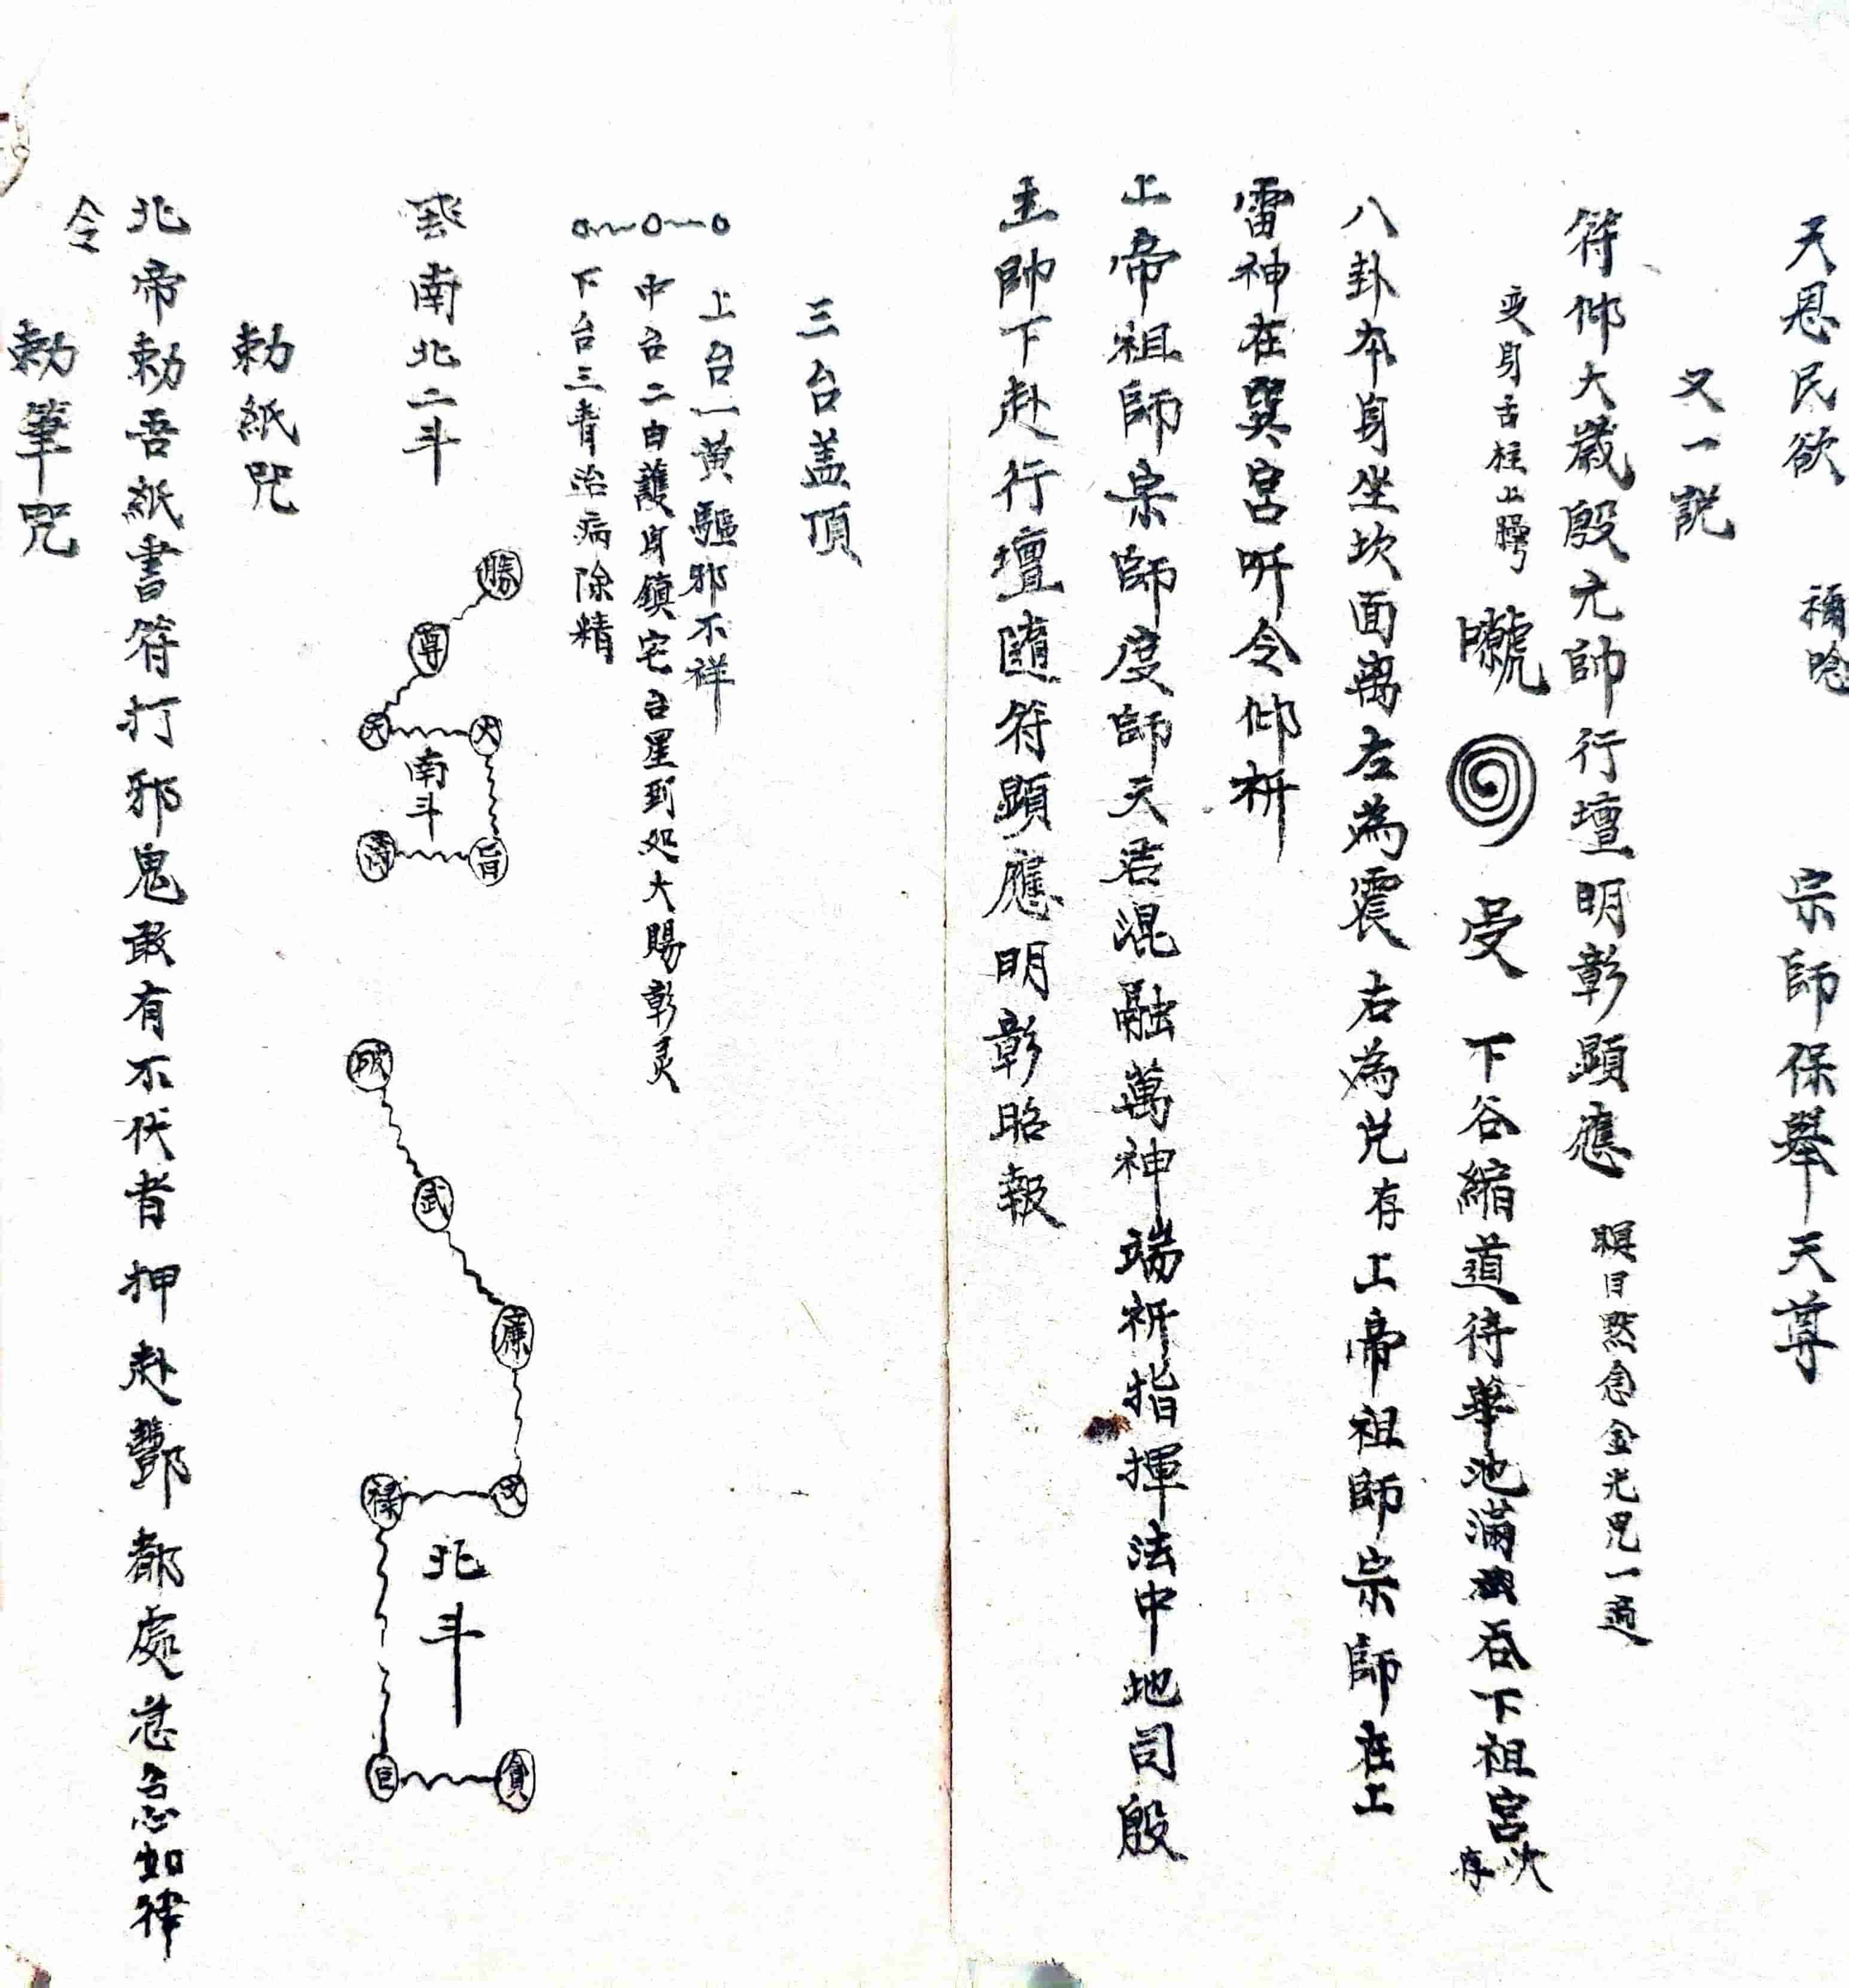 天恩民欲 稱唸 宗師保舉天尊
又一説
符仰大歲殷元帥行壇明彰顕應 瞑目黙念金光咒一遍
変身舌柱上腭 受 下谷縮道待華池滿 吞下祖宮次存
八卦本身坐坎面离左為震右為兑存上帝祖師宗師在上
雷神在巽宮吁令仰祈
上帝祖師宗師度師天君混融萬神端祈指揮法中地司殷
主帥下赴行壇隨符顕應明彰昭報
三台盖頂
上台一黄驅邪不祥
中台二白護身鎮宅台星到処大賜彰灵
下台三青治病除精
南北二斗
勝
尊
天 大
南斗
旨
破
武
廉
禄 文
北斗
巨 貪
勅紙咒
北帝勅吾紙書符打邪鬼敢有不伏者押赴酆都處急急如律
令
勅筆咒